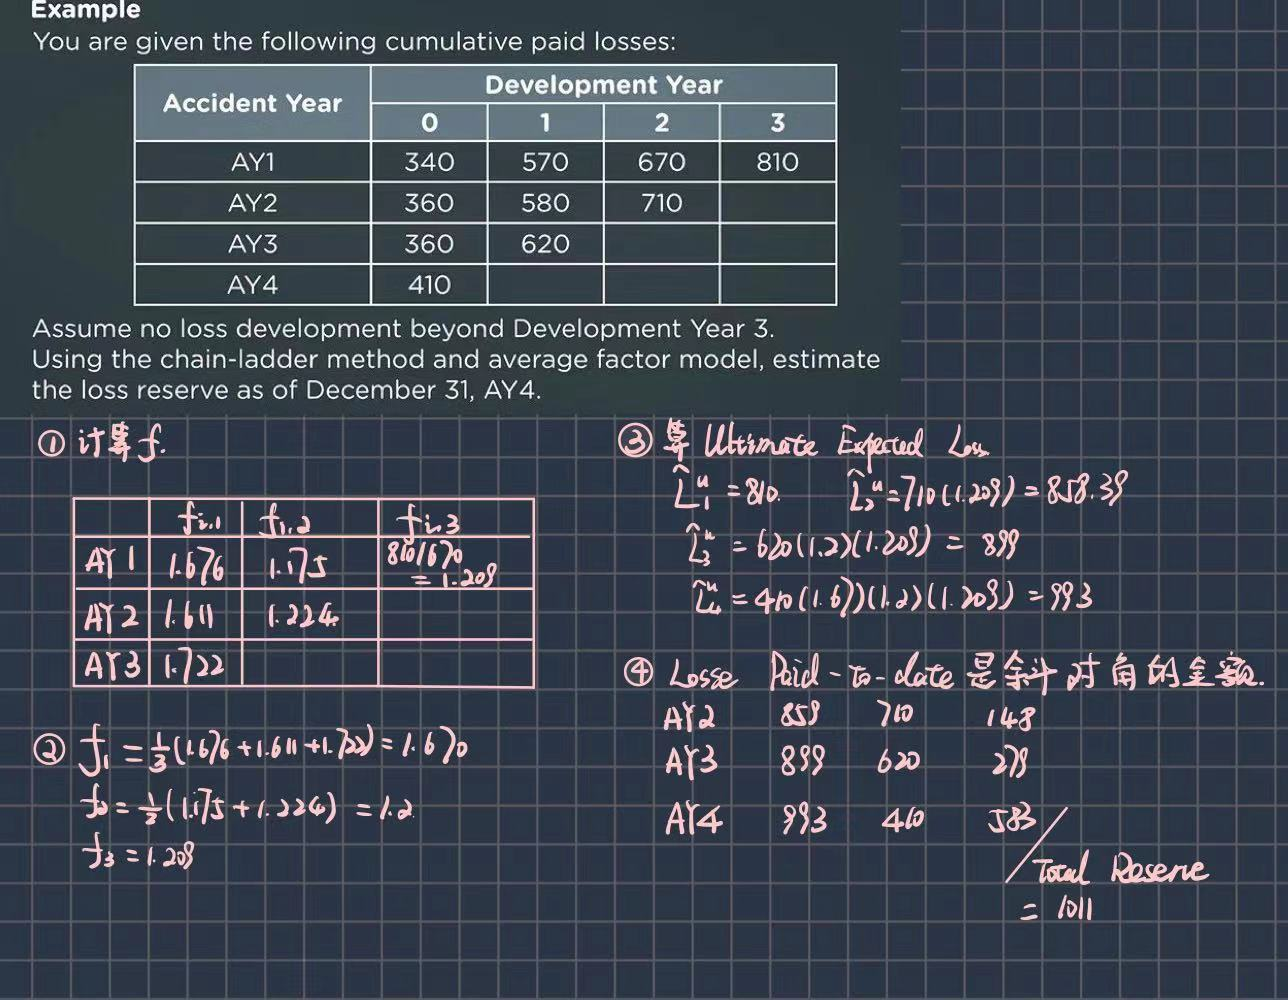 Example
You are given the following cumulative paid losses:
Accident Year Development Year
0 1 2 3
AY1 340 570 670 810
AY2 360 580 710
AY3 360 620
AY4 410
Assume no loss development beyond Development Year 3.
Using the chain-ladder method and average factor model, estimate
the loss reserve as of December 31, AY4.
① 计算f.
fi,1 fi,2 fi,3
AY1 1.676 1.175 810/670
= 1.209
AY2 1.611 1.224
AY3 1.722
② f₁ = 1/3(1.676+1.611+1.722) = 1.670
f₂ = 1/2(1.175+1.224) = 1.2
f₃ = 1.209
③ 算 Ultimate Expected Loss
L̂₁ᵘ = 810. L̂₂ᵘ = 710(1.209) = 858.39
L̂₃ᵘ = 620(1.2)(1.209) = 899
L̂₄ᵘ = 410(1.67)(1.2)(1.209) = 993
④ Losse Paid-to-date 是余斜对角的金额.
AY2 859 710 148
AY3 899 620 279
AY4 993 410 583
Total Reserve
= 1011